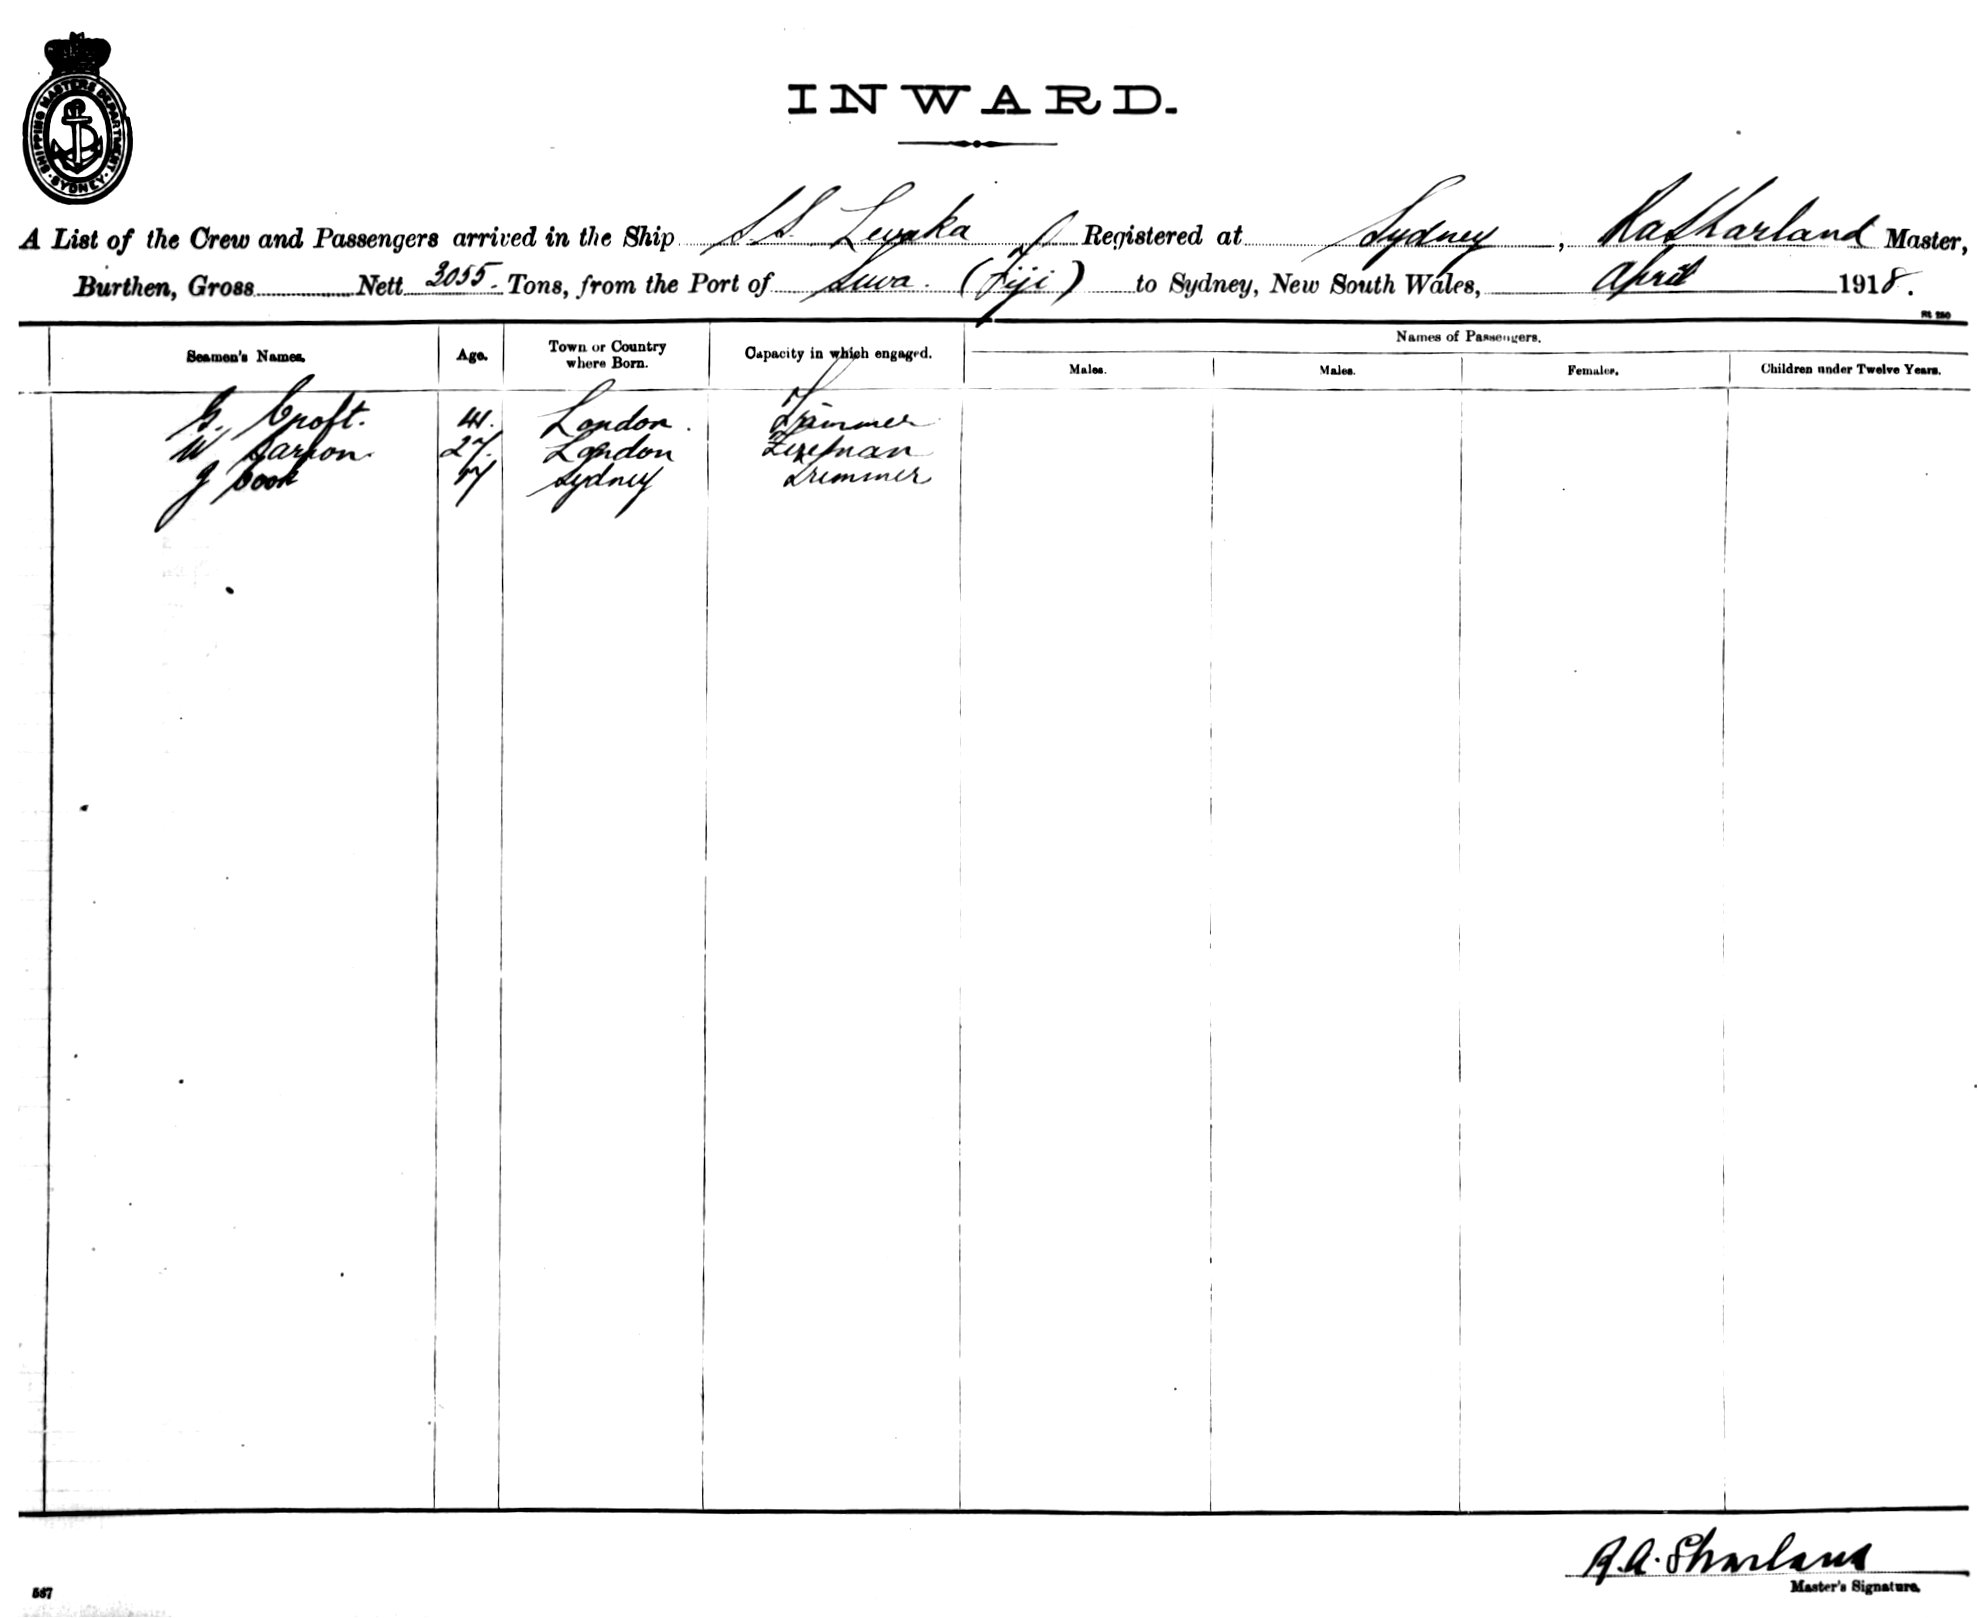 SHIPPING MASTERS DEPARTMENT. SYDNEY.
INWARD.
A List of the Crew and Passengers arrived in the Ship SS Levuka Registered at Sydney, RA Sharland Master,
Burthen, Gross Nett 3055. Tons, from the Port of Suva. (Fiji) to Sydney, New South Wales, April 1918.
Seamen's Names. Age. Town or Country where Born. Capacity in which engaged. Names of Passengers.
Males. Males. Females. Children under Twelve Years.
G. Croft. 41. London. Trimmer
W 27. London Fireman
J Cook 17 Sydney Trimmer
R.A. Sharland
Master's Signature.
567